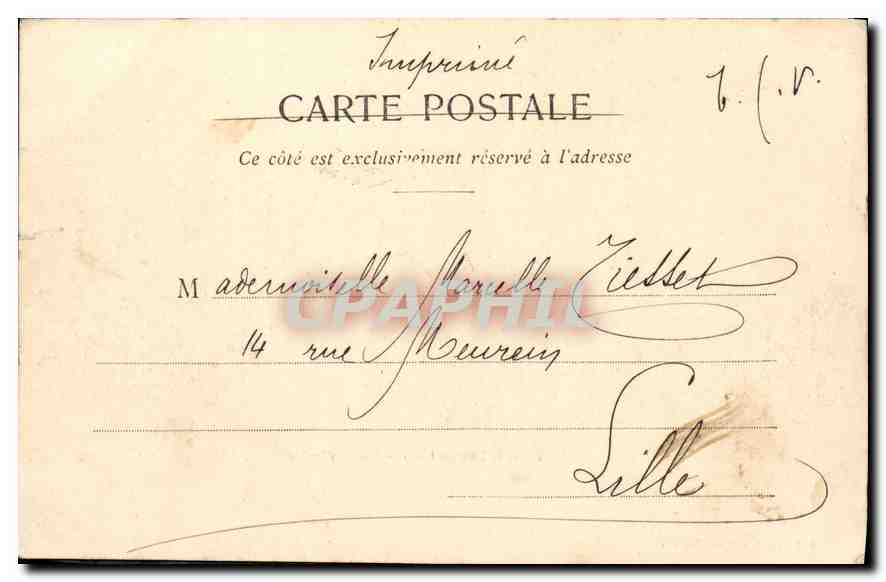 Imprimé
CARTE POSTALE
Ce côté est exclusivement réservé à l'adresse
Mademoiselle Marcelle Tiesset
CPAPHIL
14 rue Meurein
Lille